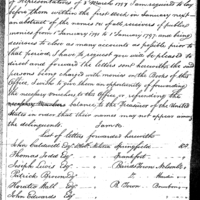 of Representatives of 3 March 1797 I am required to lay
before them within the first week in January next
an abstract of the names of all receivers of public
monies from 1 January 1791 to 1 January 1797 and being
desirous to close as many accounts as possible prior to
that period, I have to request you will be pleased to
direct and forward the letters sent herewith to the
persons being charged with monies with the Books of this
Office, and to give them an opportunity of forwarding
the necessary vouchers to this Office, or refunding the
balance, to the Treasurer of the United
States in order that their names may not appear
among the delinquents.
List of letters forwarded herewith
John Caldwell Esq Springfield
Thomas Todd Esq Frankfort
Joseph Lewis Esq Bairdstown
Patrick Brown Esq
Horatio Hall Esq
John Edwards Esq